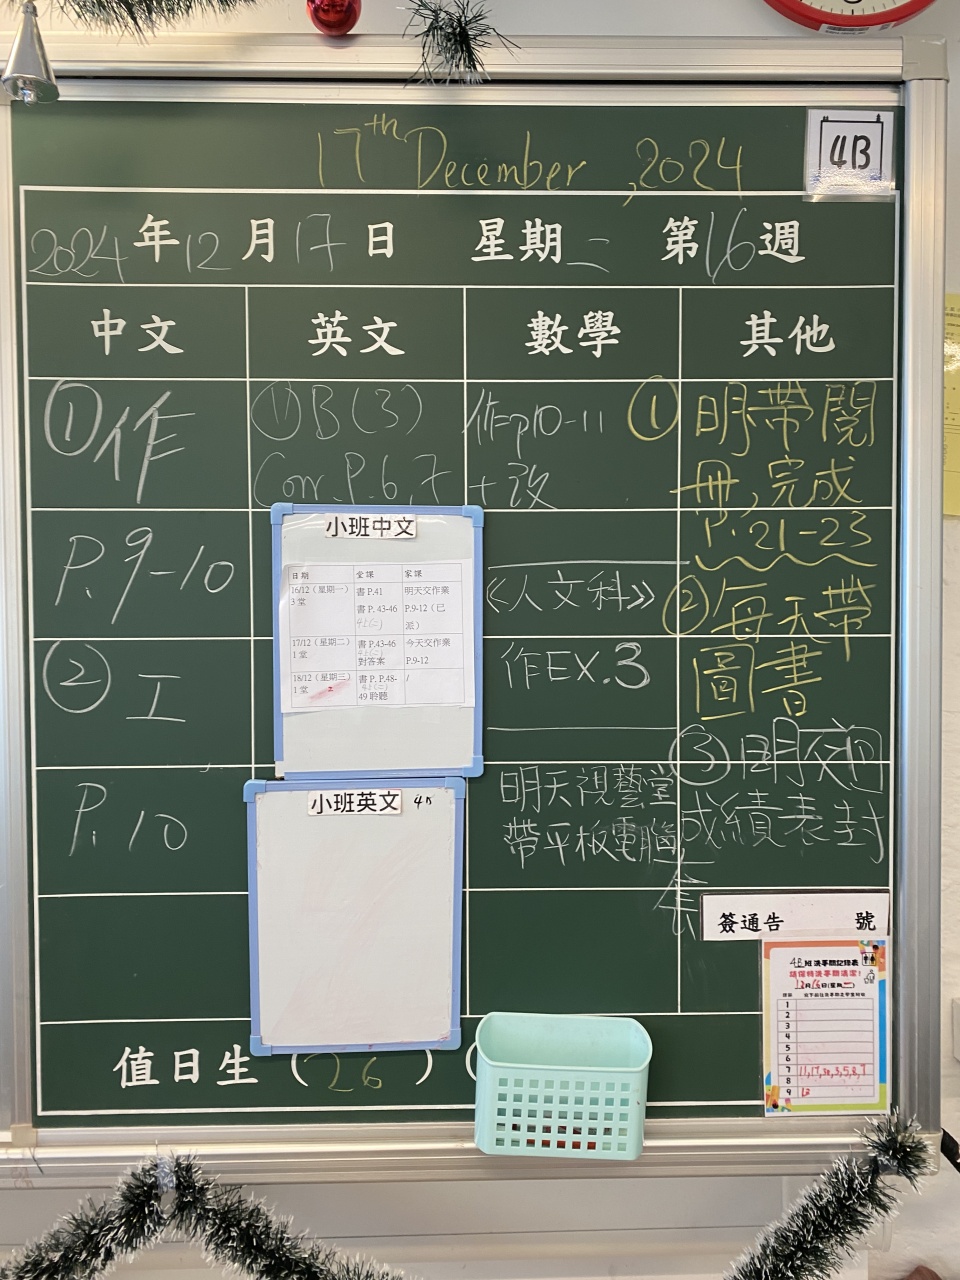 17th December, 2024
4B
2024年12月17日 星期二 第16週
中文
英文
數學
其他
①作
P.9-10
②工
P.10
①B(3)
Corr. P.6,7
作p10-11
+改
《人文科》
作EX.3
明天視藝堂
帶平板電腦
①明帶閱
冊,完成
P.21-23
②每天帶
圖書
③明交回
成績表封
套
小班中文
日期 堂課 家課
16/12(星期一) 書 P.41 明天交作業
3 堂 書 P. 43-46 P.9-12(已
派)
17/12(星期二) 書 P.43-46 今天交作業
1 堂 對答案 P.9-12
18/12(星期三) 書 P. P.48- /
1 堂 49 聆聽
小班英文
簽通告 號
4B班洗手間記錄表
請保持洗手間清潔!
12月16日(星期一)
1
2
3
4
5
6
7 11,17,30,3,5,8,7
8
9 13
值日生(26)(